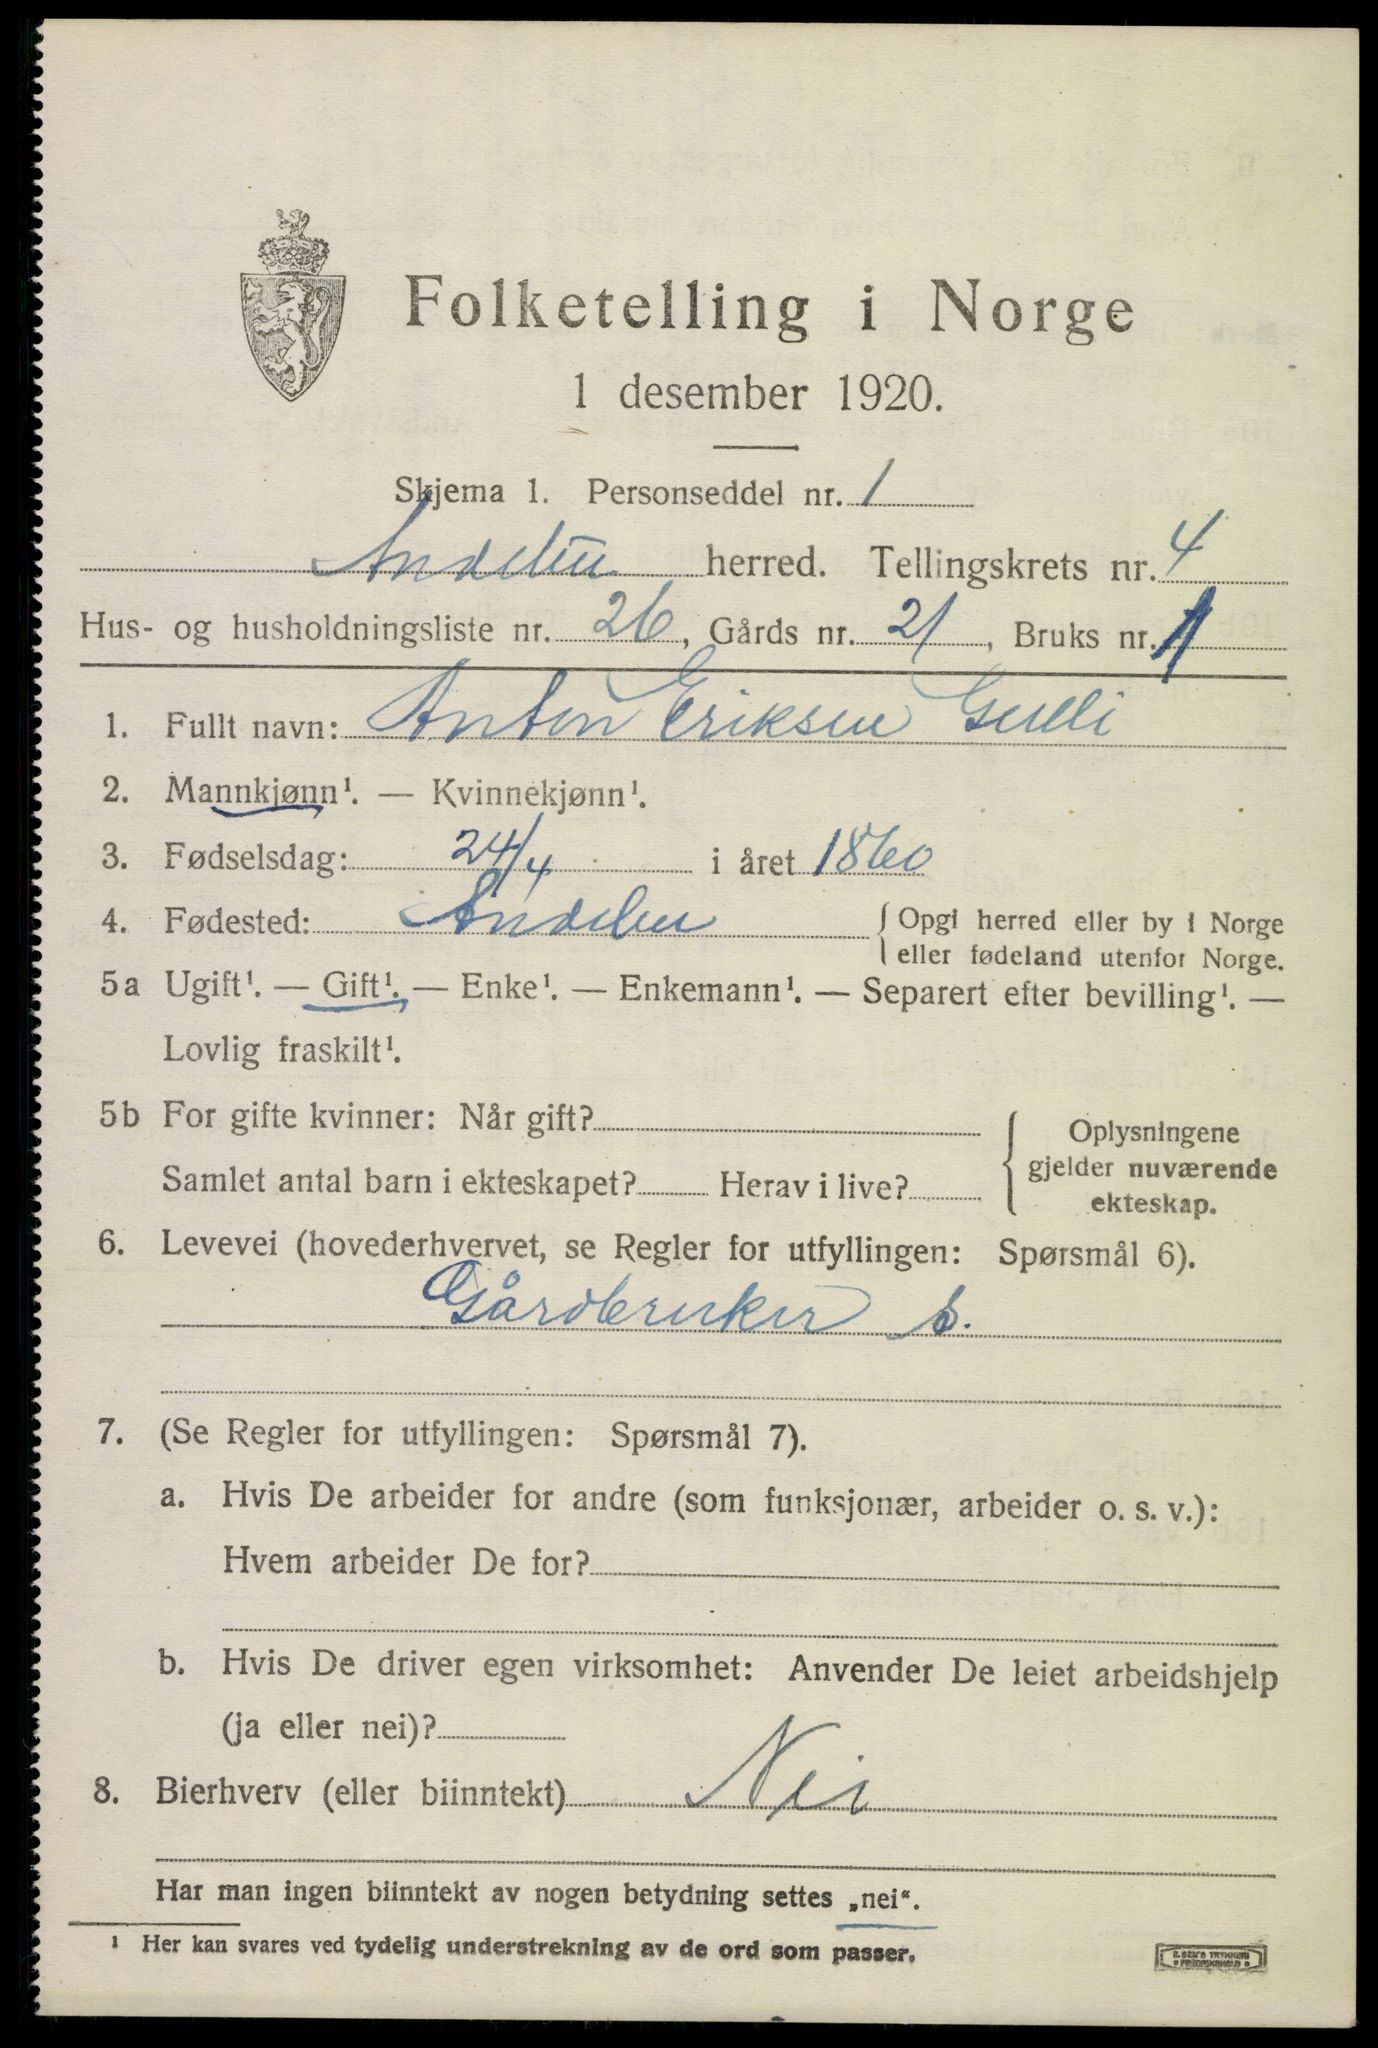 Folketelling i Norge
1 desember 1920.
Skjema 1. Personseddel nr. 1
Andebu herred. Tellingskrets nr. 4
Hus- og husholdningsliste nr. 26, Gårds nr. 21, Bruks nr. 1
1. Fullt navn: Anton Eriksen Gulli
2. Mannkjønn¹. — Kvinnekjønn¹.
3. Fødselsdag: 24/4 i året 1860
4. Fødested: Andebu { Opgi herred eller by i Norge
eller fødeland utenfor Norge.
5a Ugift¹. — Gift¹. — Enke¹. — Enkemann¹. — Separert efter bevilling¹. —
Lovlig fraskilt¹.
5b For gifte kvinner: Når gift? { Oplysningene
gjelder nuværende
Samlet antal barn i ekteskapet? Herav i live?
ekteskap.
6. Levevei (hovederhvervet, se Regler for utfyllingen: Spørsmål 6).
Gårdbruker s.
7. (Se Regler for utfyllingen: Spørsmål 7).
a. Hvis De arbeider for andre (som funksjonær, arbeider o. s. v.):
Hvem arbeider De for?
b. Hvis De driver egen virksomhet: Anvender De leiet arbeidshjelp
(ja eller nei)?
8. Bierhverv (eller biinntekt) Nei
Har man ingen biinntekt av nogen betydning settes „nei“.
¹ Her kan svares ved tydelig understrekning av de ord som passer.